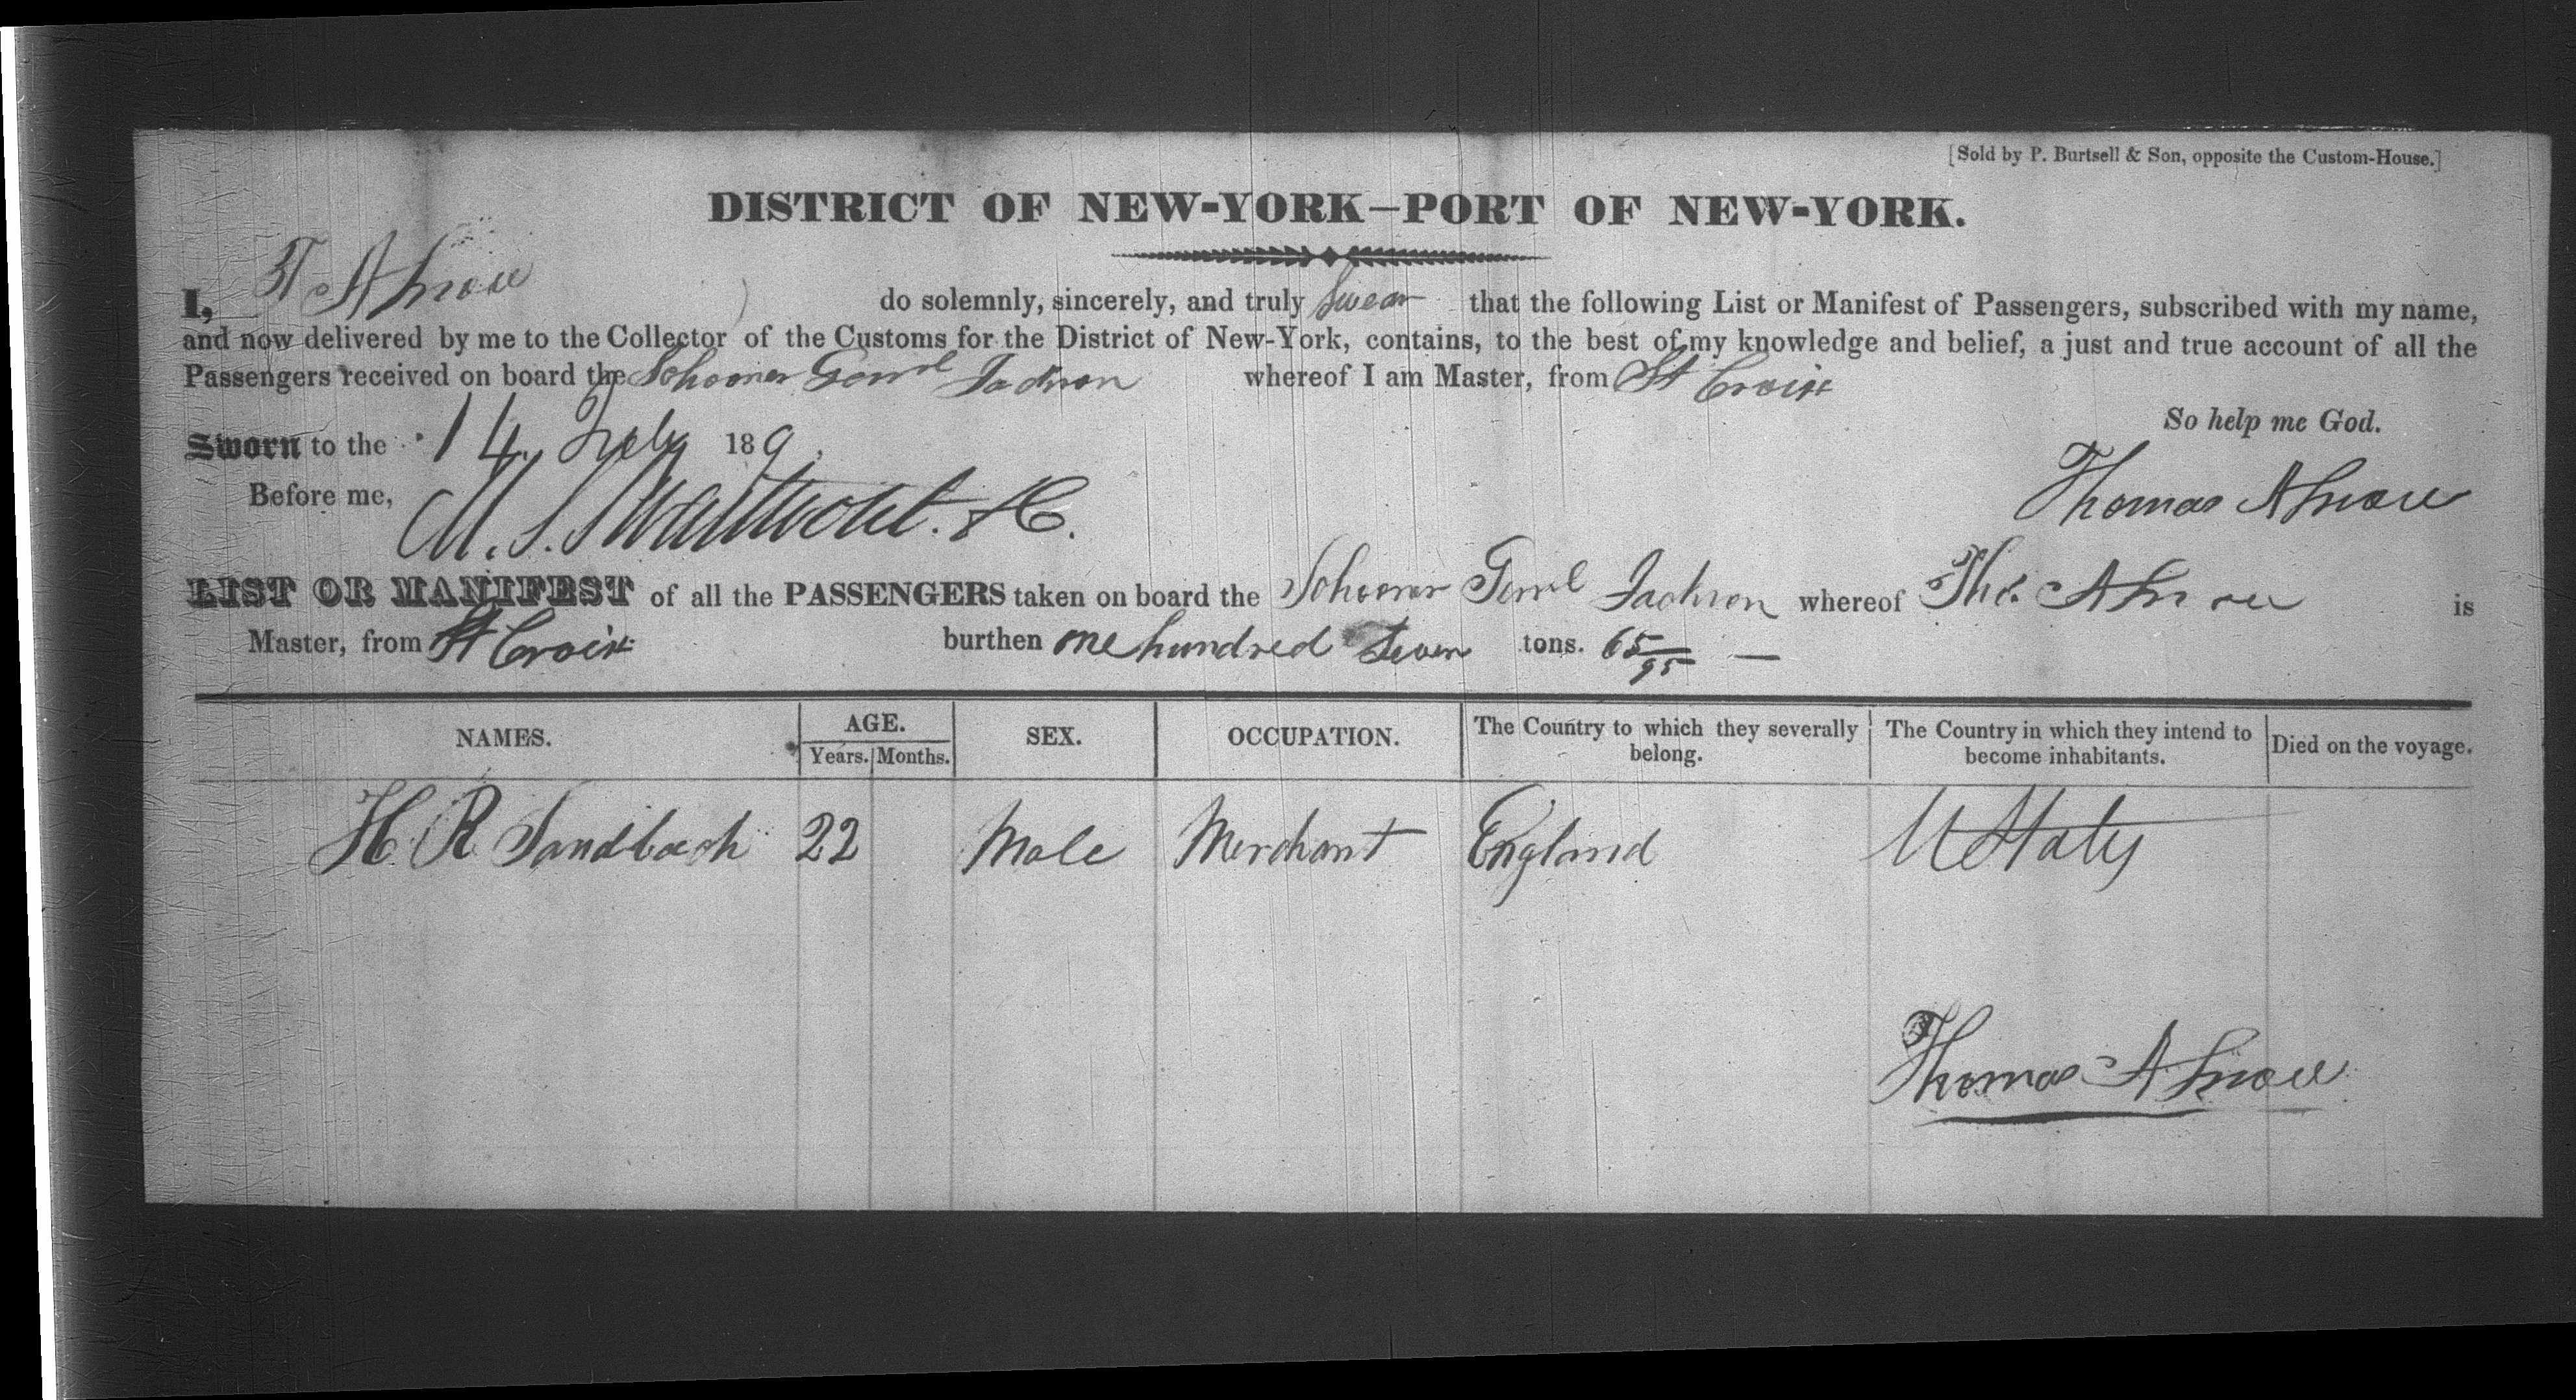 [Sold by P. Burtsell & Son, opposite the Custom-House.]
DISTRICT OF NEW-YORK—PORT OF NEW-YORK.
I, T A Snow do solemnly, sincerely, and truly Swear that the following List or Manifest of Passengers, subscribed with my name,
and now delivered by me to the Collector of the Customs for the District of New-York, contains, to the best of my knowledge and belief, a just and true account of all the
Passengers received on board the Schooner Genrl Jackson whereof I am Master, from St Croix
So help me God.
Sworn to the 14 July 189
Before me,
Thomas A Snow
LIST OR MANIFEST of all the PASSENGERS taken on board the Schooner Genrl Jackson whereof Tho. A Snow is
Master, from St Croix burthen one hundred Seven tons. 65/95 —
NAMES. AGE. SEX. OCCUPATION. The Country to which they severally belong. The Country in which they intend to become inhabitants. Died on the voyage.
Years. Months.
H. R Sandbach 22 Male Merchant England U States
Thomas A Snow